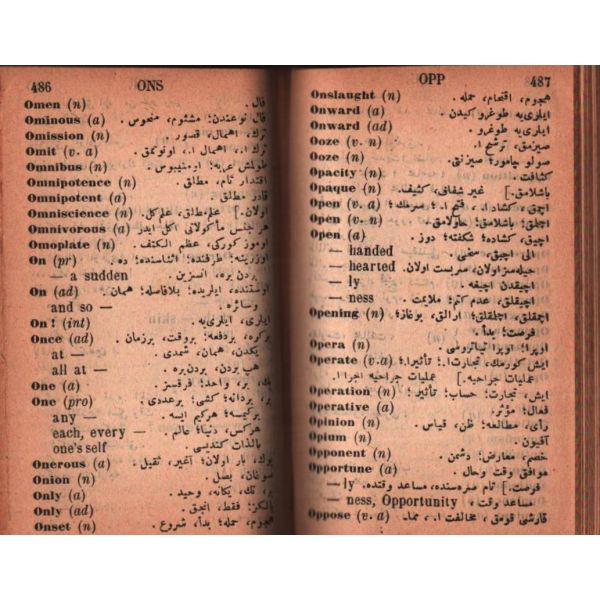 486 ONS
Omen (n) فال .
Ominous (a) فال نوعندن؛ مشئوم، منحوس .
Omission (n) ترك، اهمال، قصور .
Omit (v. a) ترك ا.، اهمال ا.، اونوتمق .
Omnibus (n) اومنيبوس .
Omnipotence (n) اقتدار تام، مطلق .
Omnipotent (a) قادر مطلق .
Omniscience (n) اولان.]
Omnivorous (a) هر جنس مأكولاتى اكل ايدن
Omoplate (n) اوموز كوركى، عظم الكتف .
On (pr) اوزرينه؛ طرفنده؛ اثناسنده؛ ده .
— a sudden بردن بره، انسزين .
On (ad) اوستنده، ايلريده؛ بلافاصله؛ همان .
and so — وسائره .
On! (int) ايلرى، ايلرى‌يه .
Once (ad) بر كره، بر دفعه؛ بر وقت، بر زمان .
at — يكدن، همان، شمدى .
all at — هپ بردن، بردن بره .
One (a) بر، واحد؛
One (pro) بر، بر دانه؛ كشى؛
any — بر كيمسه؛ هر كيم ايسه .
each, every — هركس، دنيا؛ عالم .
one's self بالذات كنديسى .
Onerous (a) يوك، بار اولان؛ آغير، ثقيل .
Onion (n) صوغان، بصل .
Only (a) بر، تك، يكانه، وحيد .
Only (ad) يالكز؛ فقط، انجق .
Onset (n) هجوم، حمله؛ بدأ، شروع .
OPP 487
Onslaught (n) هجوم، اقتحام، حمله .
Onward (a) ايلرى‌يه طوغرو كيدن .
Onward (ad) ايلرى‌يه طوغرو .
Ooze (v. n) صيزمق، ترشح ا.
Ooze (n) صولو چامور؛ صيزنتى .
Opacity (n) كثافت .
Opaque (n) غير شفاف، كثيف . باشلامق.]
Open (v. a) آچمق، كشاد ا.، فتح ا.؛
Open (v. n) آچلمق؛ باشلامق؛
Open (a) آچيق، كشاده؛ شكفته؛ دوز .
— handed الى آچيق، سخى .
— hearted حيله‌سز اولان، سربست اولان .
— ly آچيقدن آچيغه .
— ness آچيقلق، عدم كتم؛ ملايمت .
Opening (n) آچقلق، آچيقلق؛ آرالق، بوغاز؛
فرصت؛ بدأ .
Opera (n) اوپرا؛ اوپرا تياتروسى .
Operate (v.a) ايش كورمك، تجارت ا.؛ تأثير ا.؛
عمليات جراحيه.] عمليات جراحيه اجرا ا.
Operation (n) ايش، تجارت؛ حساب؛ تأثير؛
Operative (a) فعال؛ مؤثر .
Opinion (n) رأى، مطالعه؛ ظن، قياس .
Opium (n) آفيون .
Opponent (n) خصم، معارض؛ دشمن .
Opportune (a) موافق وقت وحال .
— ly تام صره‌سنده، مساعد وقتده . فرصت.]
— ness, Opportunity مساعد وقت،
Oppose (v. a) قارشى قومق، مخالفت ا.،